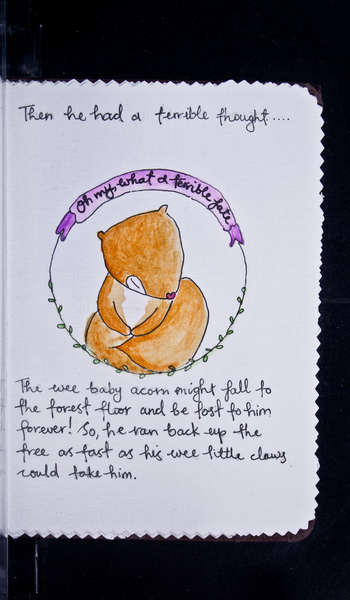 Then he had a terrible thought....
Oh my, what a terrible fate
The wee baby acorn might fall to
the forest floor and be lost to him
forever! So, he ran back up the
tree as fast as his wee little claws
could take him.